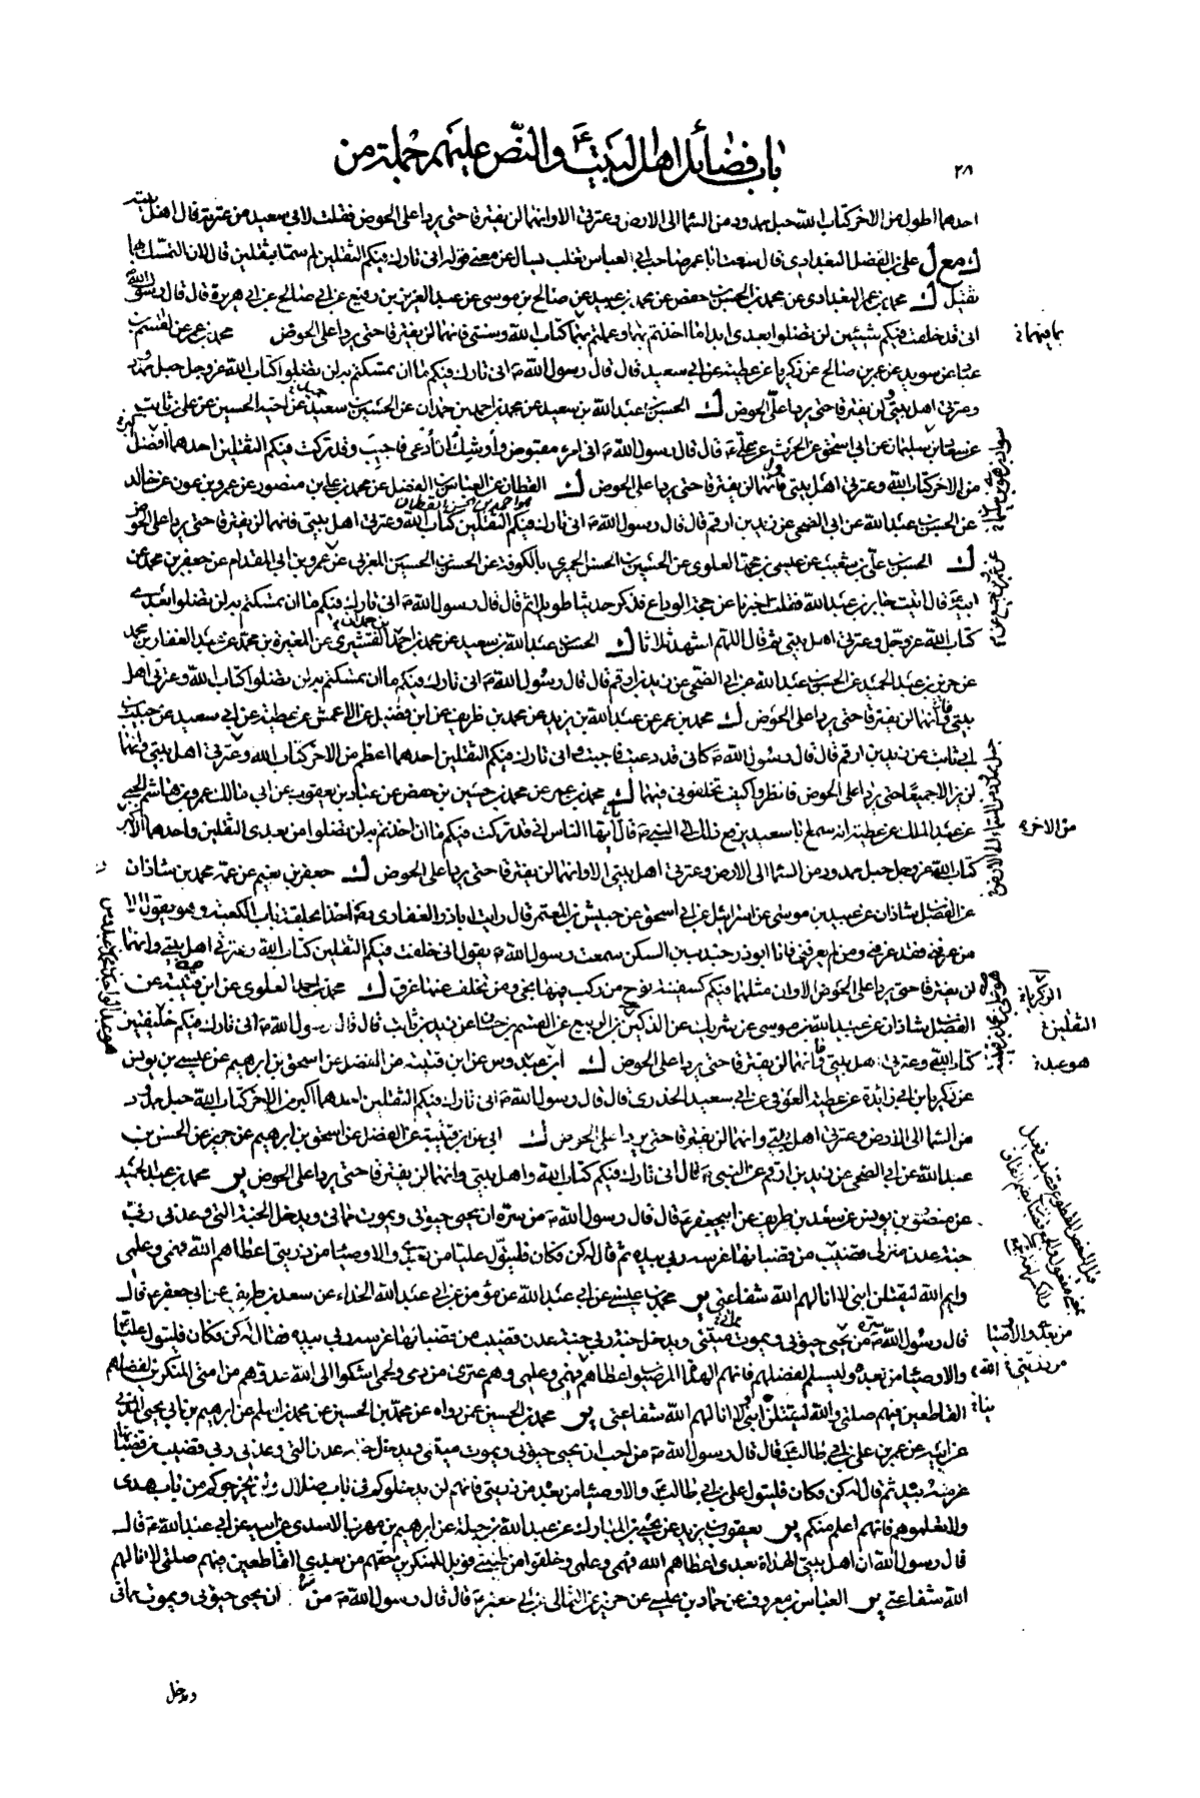 باب فضائل اهل البيت ع والنص عليهم جملة من
٢٨
احدهما اطول من الاخر كتاب الله حبل ممدود من السما الى الارض وعترتي الا وانهما لن يفترقا حتى يردا على الحوض فقلت لابي سعيد من عترته قال اهل بيته
ك مع ل علي بن الفضل البغدادي قال سمعت ابا عمر صاحب ابي العباس تغلب يسال عن معنى قوله اني تارك فيكم الثقلين لم سميا بثقلين قال لان التمسك بهما
ثقيل ك محمد بن عمر البغدادي عن محمد بن الحسين حفص عن محمد بن عبيد عن صالح بن موسى عن عبد العزيز بن رفيع عن ابي صالح عن ابي هريرة قال قال رسول الله
اني قد خلفت فيكم شيئين لن تضلوا بعدي ابدا ما اخذتم بهما وعملتم بما كتاب الله وسنتي فانهما لن يفترقا حتى يردا على الحوض محمد بن عمر عن القسم بن
عباد عن سويد عن عمر بن صالح عن زكريا عن عطية عن ابي سعيد قال قال رسول الله ص اني تارك فيكم ما ان تمسكتم به لن تضلوا كتاب الله عز وجل حبل ممدود
وعترتي اهل بيتي ولن يفترقا حتى يردا على الحوض ك الحسن بن عبد الله بن سعيد عن محمد بن احمد بن حمدان عن الحسين سعيد عن اخيه الحسين عن علي بن ثابت
عن سعاد بن سليمان عن ابي اسحق عن الحرث عن علي ع قال قال رسول الله ص اني امرء مقبوض واوشيك ان أدعى فاجيب وقد تركت فيكم الثقلين احدهما افضل
من الاخر كتاب الله وعترتي اهل بيتي فانهما لن يفترقا حتى يردا على الحوض ك القطان عن العباس بن الفضل عن محمد بن علي بن منصور عن عمرو بن عون عن خالد
عن الحسن بن عبد الله عن ابي الضحى عن زيد بن ارقم قال قال رسول الله ص اني تارك فيكم الثقلين كتاب الله وعترتي اهل بيتي فانهما لن يفترقا حتى يردا على الحوض
ك الحسن بن علي بن شعيب عن عيسى بن محمد العلوي عن الحسين بن الحسن الحميري بالكوفة عن الحسن بن الحسين العربي عن عمرو بن ابي المقدام عن جعفر بن محمد عن
ابيه ع قال اتيت جابر بن عبد الله فقلت اخبرنا عن حجة الوداع فذكر حديثا طويلا ثم قال قال رسول الله ص اني تارك فيكم ما ان تمسكتم به لن تضلوا بعدي
كتاب الله عز وجل وعترتي اهل بيتي ثم قال اللهم اشهد ثلاثا ك الحسن بن عبد الله بن سعيد عن محمد بن احمد القشيري عن المغيرة بن محمد عن عبد الغفار بن محمد
عن جرير بن عبد الحميد عن الحسن بن عبد الله عن ابي الضحى عن زيد بن ارقم قال قال رسول الله ص اني تارك فيكم ما ان تمسكتم به لن تضلوا كتاب الله وعترتي اهل
بيتي فانهما لن يفترقا حتى يردا على الحوض ك محمد بن عمر عن عبد الله بن يزيد عن محمد بن طريف عن ابن فضيل عن الاعمش عن عطية عن ابي سعيد عن حبيب بن
ابي ثابت عن زيد بن ارقم قال قال رسول الله ص كاني قد دعيت فاجبت واني تارك فيكم الثقلين احدهما اعظم من الاخر كتاب الله وعترتي اهل بيتي وانهما
لن يزالا جميعا حتى يردا على الحوض فانظروا كيف تخلفوني فيهما ك محمد بن عمر عن محمد بن حسين بن حفص عن عباد بن يعقوب عن ابي مالك عمرو بن هاشم الجنبي
عن عبد الملك عن عطية انه سمع ابا سعيد يرفع ذلك الى النبي ص قال ايها الناس اني قد تركت فيكم ما ان اخذتم به لن تضلوا من بعدي الثقلين واحدهما اكبر
كتاب الله عز وجل حبل ممدود من السما الى الارض وعترتي اهل بيتي الا وانهما لن يفترقا حتى يردا على الحوض ك جعفر بن نعيم عن عمه محمد بن شاذان
عن الفضل بن شاذان عن عبيد بن موسى عن اسرائيل عن ابي اسحق عن حبيش بن المعتمر قال رايت اباذر الغفاري ره اخذا بحلقة باب الكعبة وهو يقول الا
من عرفني فقد عرفني ومن لم يعرفني فانا ابوذر جندب بن السكن سمعت رسول الله ص يقول اني خلفت فيكم الثقلين كتاب الله وعترتي اهل بيتي وانهما
لن يفترقا حتى يردا على الحوض الا وان مثلهما فيكم كسفينة نوح من ركب فيها نجى ومن تخلف عنها غرق ك محمد بن احمد العلوي عن ابن قتيبة عن
الفضل بن شاذان عن عبيد الله بن موسى عن شريك عن الركين بن الربيع عن القسم بن حسان عن زيد بن ثابت قال قال رسول الله ص اني تارك فيكم خليفتين
كتاب الله وعترتي اهل بيتي فانهما لن يفترقا حتى يردا على الحوض ك ابن عبدوس عن ابن قتيبة عن الفضل عن اسحق بن ابرهيم عن عيسى بن يونس
عن زكريا بن ابي زائدة عن عطية العوفي عن ابي سعيد الخدري قال قال رسول الله ص اني تارك فيكم الثقلين احدهما اكبر من الاخر كتاب الله حبل ممدود
من السما الى الارض وعترتي اهل بيتي وانهما لن يفترقا حتى يردا على الحوض ك ابي عن ابن قتيبة عن الفضل عن اسحق بن ابرهيم عن جرير عن الحسن بن
عبد الله عن ابي الضحى عن زيد بن ارقم عن النبي ص قال اني تارك فيكم كتاب الله واهل بيتي وانهما لن يفترقا حتى يردا على الحوض ير محمد بن عبد الحميد
عن منصور بن يونس عن سعد بن طريف عن ابي جعفر ع قال قال رسول الله ص من سره ان يحيى حيوتي ويموت مماتي ويدخل الجنة التي وعدني ربي
جنة عدن منزلي قضيب من قضبانها غرسه ربي بيده ثم قال له كن فكان فليتول عليا من بعدي والاوصيا من ذريتي اعطاهم الله فهمي وعلمي
وايم الله ليقتلن ابني لا انالهم الله شفاعتي ير محمد بن عيسى عن ابي عبد الله عن مؤمن عن ابي عبد الله الحذاء عن سعد بن طريف عن ابي جعفر ع قال
قال رسول الله ص من سره يحيى حيوتي ويموت ميتتي ويدخل جنة ربي جنة عدن قضيب من قضبانها غرسه ربي بيده فقال له كن فكان فليتول عليا
والاوصيا من بعده وليسلم لفضلهم فانهم الهداة المرضيون اعطاهم فهمي وعلمي وهم عترتي من دمي ولحمي اشكوا الى الله عدوهم من امتي المنكرين لفضلهم
القاطعين فيهم صلتي والله ليقتلن ابني لا انالهم الله شفاعتي ير محمد بن الحسين عمن رواه عن محمد بن الحسين عن محمد بن اسلم عن ابرهيم بن ابي يحيى المدني
عن ابيه عن عمر بن علي بن ابي طالب ع قال قال رسول الله ص من احب ان يحيى حيوتي ويموت ميتتي ويدخل جنة عدن التي وعدني ربي قضيب من قضبانها
غرسه بيده ثم قال له كن فكان فليتول علي بن ابي طالب ع والاوصيا من بعده من ذريتي فانهم لن يدخلوكم في باب ضلال ولن يخرجوكم من باب هدى
ولا تعلموهم فانهم اعلم منكم ير يعقوب بن يزيد عن يحيى بن المبارك عن عبد الله بن جبلة عن ابرهيم بن مهزم الاسدي عن ابيه عن ابي عبد الله ع قال
قال رسول الله ان اهل بيتي الهداة بعدي اعطاهم الله فهمي وعلمي وخلقوا من طينتي فويل للمنكرين حقهم من بعدي القاطعين فيهم صلتي لا انالهم
الله شفاعتي ير العباس بن معروف عن حماد بن عيسى عن حريز عن الثمالي عن ابي جعفر ع قال قال رسول الله ص من سره ان يحيى حيوتي ويموت مماتي
ويدخل
من الاخر
الثقلين
هو عبد
من بعده والاوصيا
من ذريتي